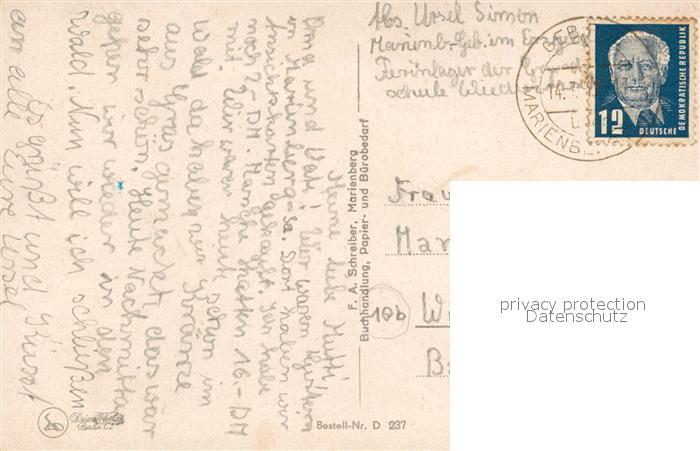 Meine liebe Mutti,
Oma und Vati! Wir waren gestern
in Marienberg-Sa. Dort haben wir
Ansichtskarten gekauft. Ich habe
noch 25.-DM. Manche hatten 16.-DM
mit. Wir waren heut schon im
Wald da haben wir Kränze
aus Gras gemacht, das war
sehr schön. Heute Nachmittag
gehen wir wieder in den
Wald. Nun will ich schließen
Es grüßt und Küsst
an alle Eure Ursel
Abs. Ursel Simon
Marienb-Geb. im
Ferienlager der
schule
14.7.
MARIENBE
12
DEUTSCHE
DEMOKRATISCHE REPUBLIK
F. A. Schreiber, Marienberg
Buchhandlung, Papier- und Bürobedarf
Frau
Mar
10b
Wi
B
privacy protection
Datenschutz
Berlin C2
Bestell-Nr. D 237